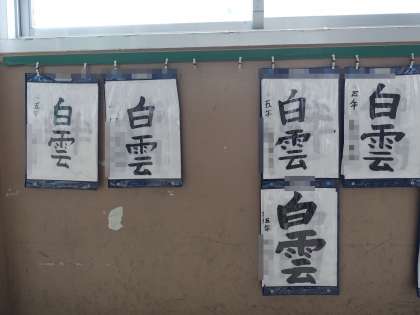 白雲
五年
白雲
白雲
五年
白雲
五年
白雲
五年